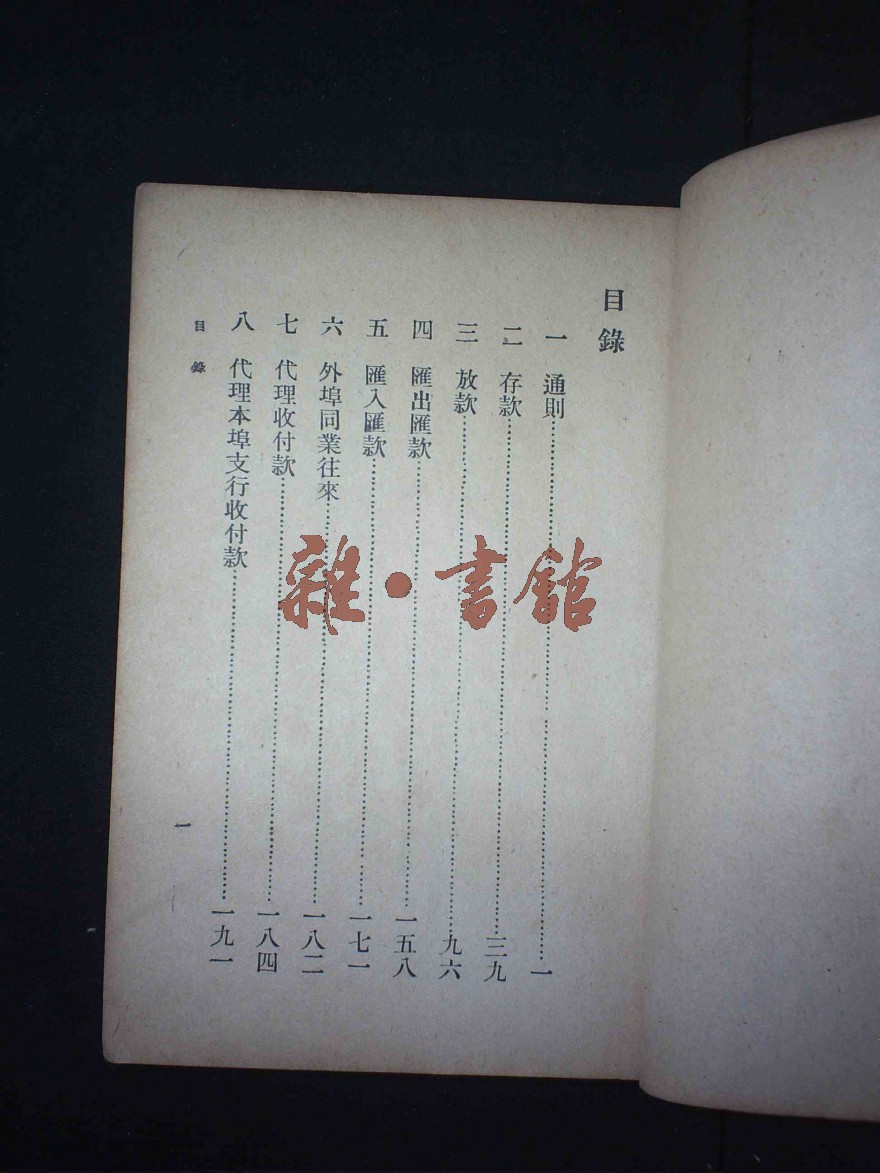 目錄
一 通則……一
二 存款……三九
三 放款……九六
四 匯出匯款……一五八
五 匯入匯款……一七一
六 外埠同業往來……一八二
七 代理收付款……一八四
八 代理本埠支行收付款……一九一
目錄 一
雜·書館